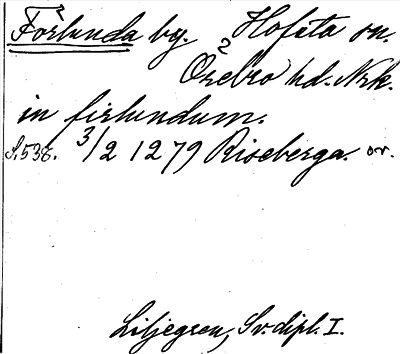 Förlunda by. Hofsta sn.
2 Örebro hd. Nrk.
in firlundum.
S. 538. 3/2 1279 Riseberga. or.
Liljegren, Sv. dipl. I.